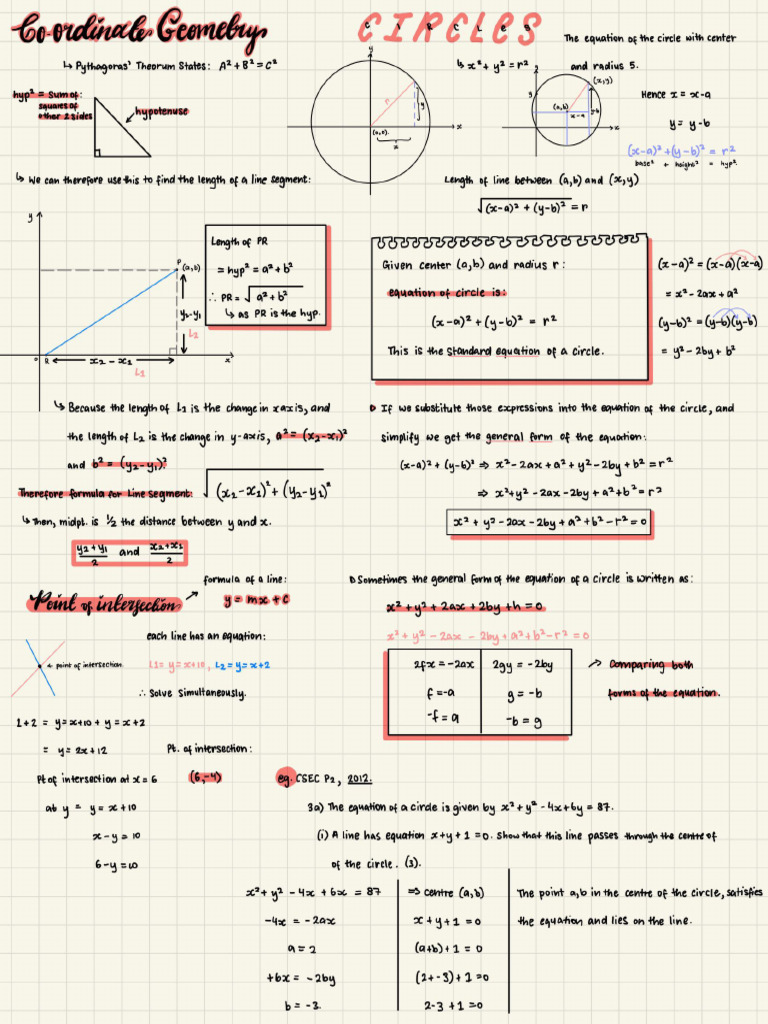 Co-ordinate Geometry
↳ Pythagoras' Theorum States: A² + B² = C²
hyp² = Sum of:
squares of
other 2 sides
hypotenuse
↳ We can therefore use this to find the length of a line segment:
y
P
(a,b)
y₂-y₁
L₂
0
R
x₂ - x₁
x
L₁
Length of PR
= hyp² = a² + b²
∴ PR = √a² + b²
↳ as PR is the hyp.
↳ Because the length of L₁ is the change in x axis, and
the length of L₂ is the change in y-axis, a² = (x₂-x₁)²
and b² = (y₂-y₁)²
Therefore formula for Line segment: √(x₂-x₁)² + (y₂-y₁)²
↳ Then, midpt. is ½ the distance between y and x.
y₂+y₁/2 and x₂+x₁/2
Point of intersection
formula of a line:
y = mx + c
each line has an equation:
← point of intersection
L1 = y = x+10, L2 = y = x+2
∴ Solve Simultaneously.
1+2 = y=x+10 + y = x+2
= y = 2x+12
Pt. of intersection:
Pt of intersection at x = 6
(6,-4)
at y = y = x+10
x-y = 10
6-y = 10
CIRCLES
CIRCLES
The equation of the circle with center
↳ x² + y² = r²
and radius 5.
y
r
y
(0,0)
x
x
y
y
(x,y)
(a,b)
x-a
y-b
x
Hence x = x-a
y = y-b
(x-a)² + (y-b)² = r²
base² + height² = hyp²
Length of line between (a,b) and (x,y)
√(x-a)² + (y-b)² = r
Given center (a,b) and radius r:
equation of circle is:
(x-a)² + (y-b)² = r²
This is the standard equation of a circle.
(x-a)² = (x-a)(x-a)
= x² - 2ax + a²
(y-b)² = (y-b)(y-b)
= y² - 2by + b²
If we substitute those expressions into the equation of the circle, and
simplify we get the general form of the equation:
(x-a)² + (y-b)² ⇒ x² - 2ax + a² + y² - 2by + b² = r²
⇒ x² + y² - 2ax - 2by + a² + b² = r²
x² + y² - 2ax - 2by + a² + b² - r² = 0
Sometimes the general form of the equation of a circle is written as:
x² + y² + 2ax + 2by + h = 0
x² + y² - 2ax - 2by + a² + b² - r² = 0
2fx = -2ax
2gy = -2by
f = -a
g = -b
-f = a
-b = g
Comparing both
forms of the equation.
eg. CSEC P2, 2012.
3a) The equation of a circle is given by x² + y² - 4x + 6y = 87.
(i) A line has equation x+y+1 = 0. Show that this line passes through the centre of
of the circle. (3).
x² + y² - 4x + 6x = 87
-4x = -2ax
a = 2
+6x = -2by
b = -3.
⇒ centre (a,b)
x + y + 1 = 0
(a+b) + 1 = 0
(2+-3) + 1 = 0
2-3 + 1 = 0
The point a,b in the centre of the circle, satisfies
the equation and lies on the line.